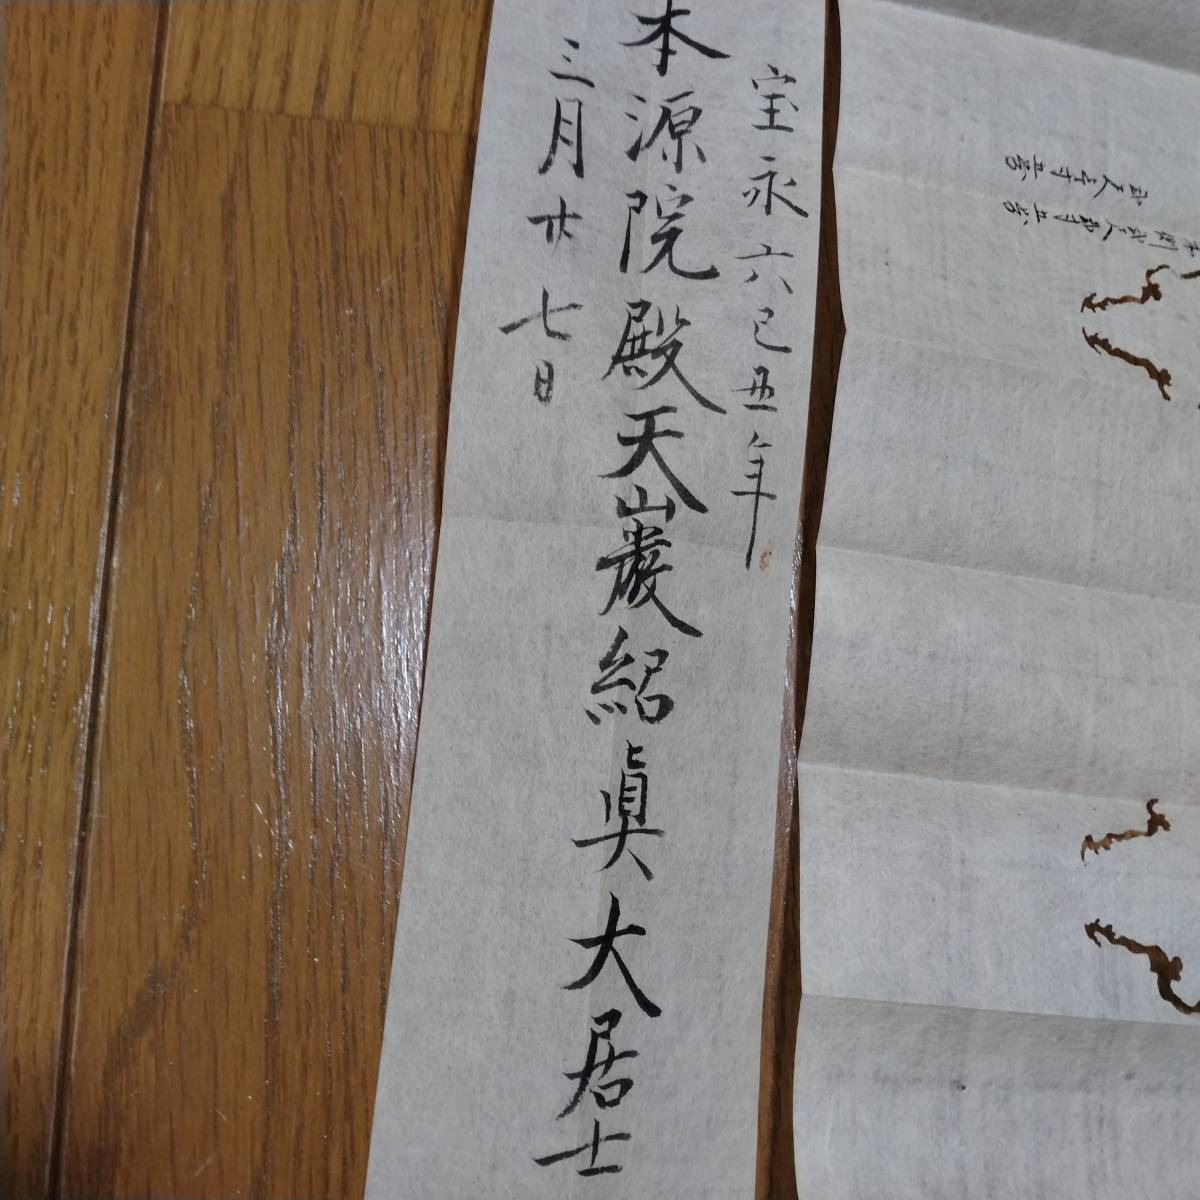 宝永六己丑年
本源院殿天巖紹眞大居士
三月廿七日